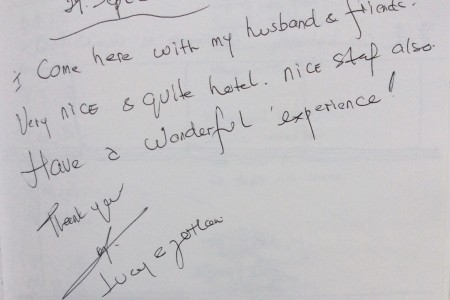 29. Sept
I Come here with my husband & friends.
Very nice & quite hotel. nice staf also.
Have a wonderful experience!
Thank you
Lucy &